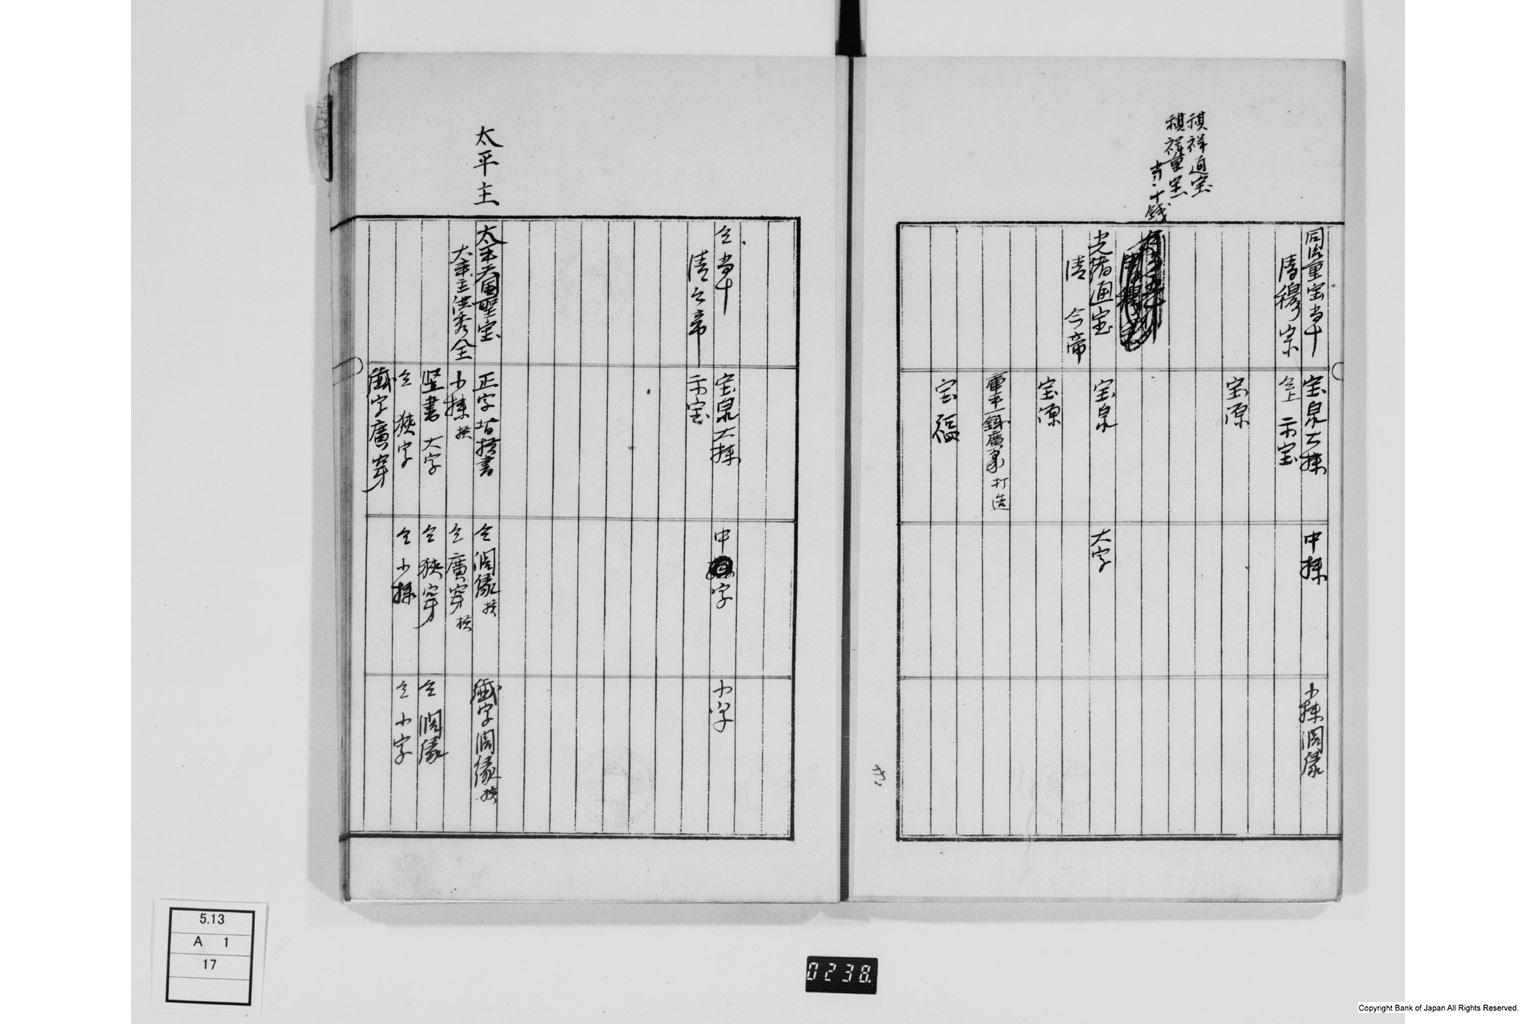 祺祥通宝
祺祥重宝
当十銭
同治重宝当十
清穆宗
宝泉大様
中様
小様濶縁
仝上 示宝
宝源
光緒通宝
清 今帝
宝泉
大字
宝源
重平一銭廣
打造
宝福
仝 当十
清仝帝
宝泉大様
中
字
小字
示宝
太平主
太平天国聖宝
太平王洪秀全
正字 楷書
仝 濶縁
字濶縁
小様
仝 廣穿
竪書 大字
仝 狭穿
仝 濶縁
仝 狭字
仝 小様
仝 小字
字廣穿
5.13
A 1
17
0238.
Copyright Bank of Japan All Rights Reserved.